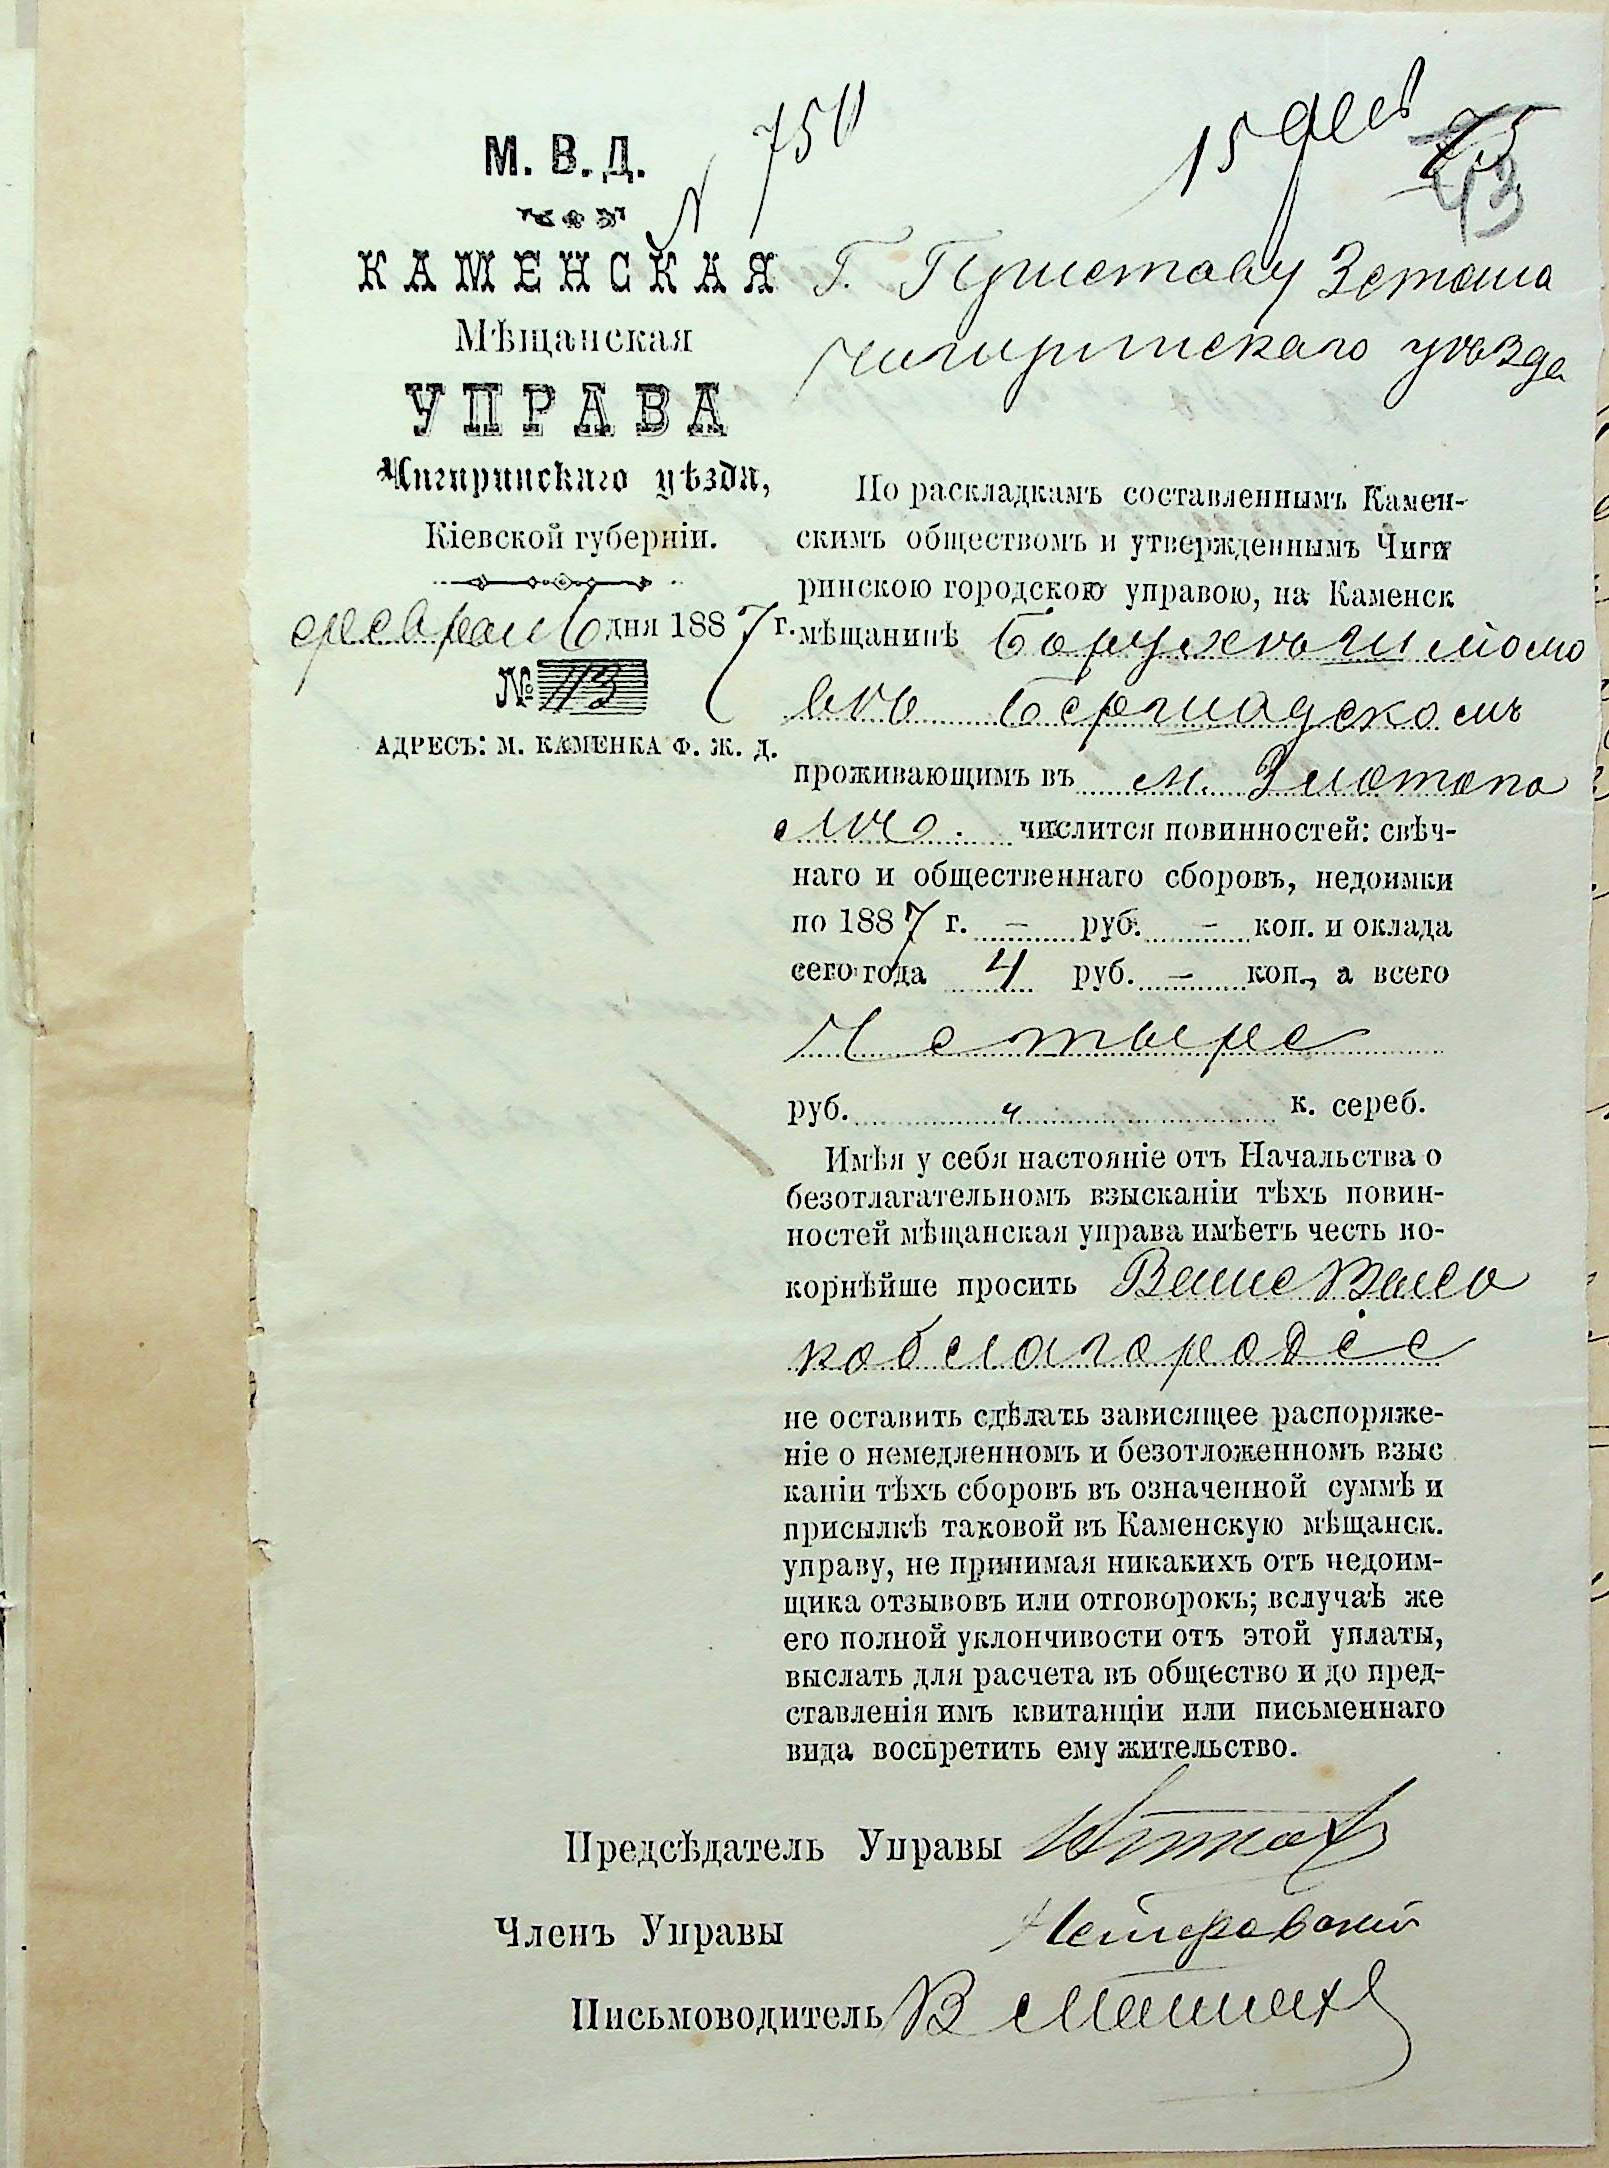 N 750
15 фев
75
43
М. В. Д.
КАМЕНСКАЯ
Мѣщанская
УПРАВА
Чигиринскаго уѣзда,
Кіевской губерніи.
февраля 6 дня 1887 г.
№ 113
АДРЕСЪ: М. КАМЕНКА Ф. Ж. Д.
Г. Приставу 3 стана
Чигиринскаго уѣзда
По раскладкамъ составленнымъ Камен-
скимъ обществомъ и утвержденнымъ Чиги
ринскою городскою управою, на Каменск
мѣщанинѣ Борухѣ Шлiомо
вѣ Бершадскомъ
проживающимъ въ м. Златопо
лѣ. числится повинностей: свѣч-
наго и общественнаго сборовъ, недоимки
по 1887 г. – руб. – коп. и оклада
сего года 4 руб. – коп., а всего
Четыре
руб. к. сереб.
Имѣя у себя настояніе отъ Начальства о
безотлагательномъ взысканіи тѣхъ повин-
ностей мѣщанская управа имѣетъ честь по-
корнѣйше просить Ваше Высо
коблагородіе
не оставить сдѣлать зависящее распоряже-
ніе о немедленномъ и безотложенномъ взыс
каніи тѣхъ сборовъ въ означенной суммѣ и
присылкѣ таковой въ Каменскую мѣщанск.
управу, не принимая никакихъ отъ недоим-
щика отзывовъ или отговорокъ; вслучаѣ же
его полной уклончивости отъ этой уплаты,
выслать для расчета въ общество и до пред-
ставленія имъ квитанціи или письменнаго
вида воспретить ему жительство.
Предсѣдатель Управы
Членъ Управы
Письмоводитель В